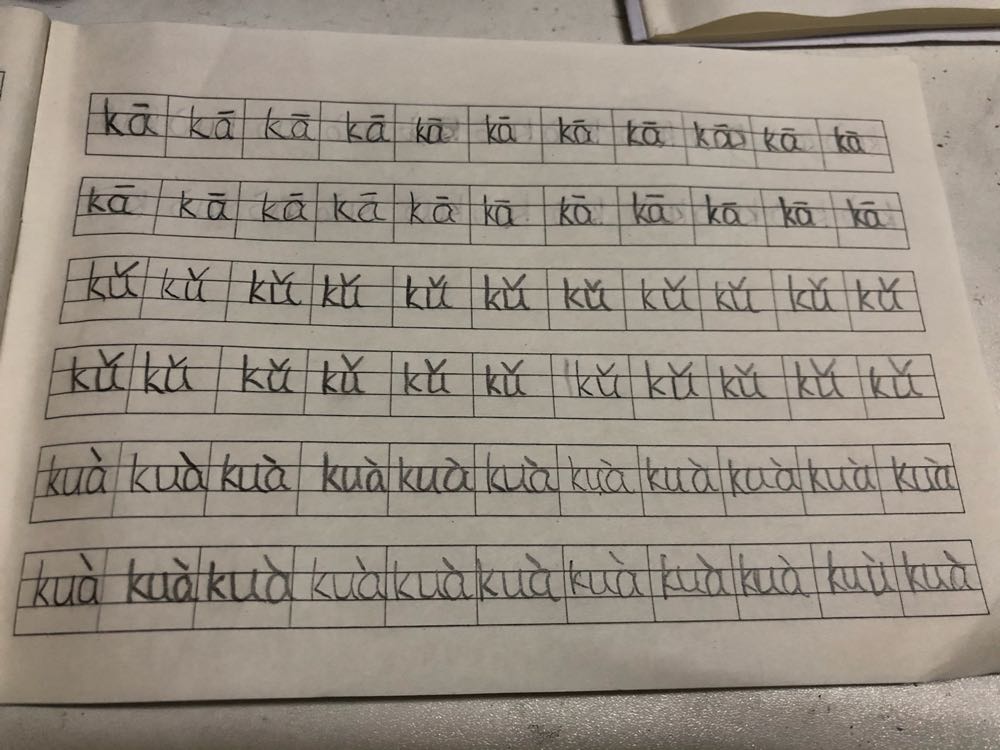 kā kā kā kā kā kā kā kā kā kā kā
kā kā kā kā kā kā kā kā kā kā kā
kǔ kǔ kǔ kǔ kǔ kǔ kǔ kǔ kǔ kǔ kǔ
kǔ kǔ kǔ kǔ kǔ kǔ kǔ kǔ kǔ kǔ kǔ
kuà kuà kuà kuà kuà kuà kuà kuà kuà kuà kuà
kuà kuà kuà kuà kuà kuà kuà kuà kuà kuù kuà